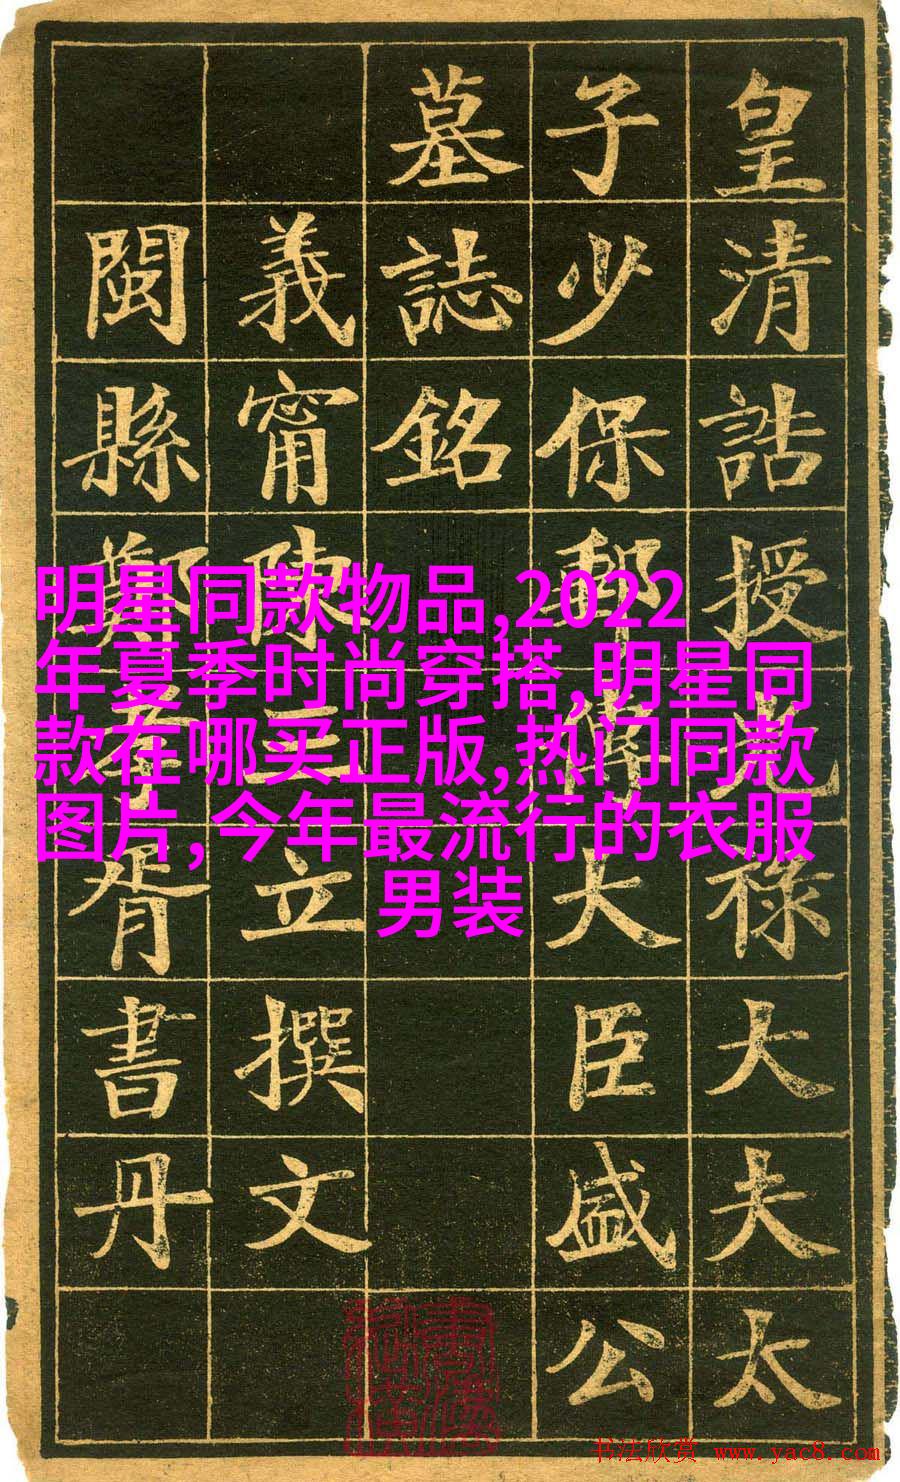 皇清誥授光祿大夫太
子少保郵傳大臣盛公
墓誌銘
義甯陳三立撰文
閩縣鄭孝胥書丹
明星同款物品,2022
年夏季时尚穿搭,明星同
款在哪买正版,热门同款
图片,今年最流行的衣服
男装
书法欣赏 www.yac8.com